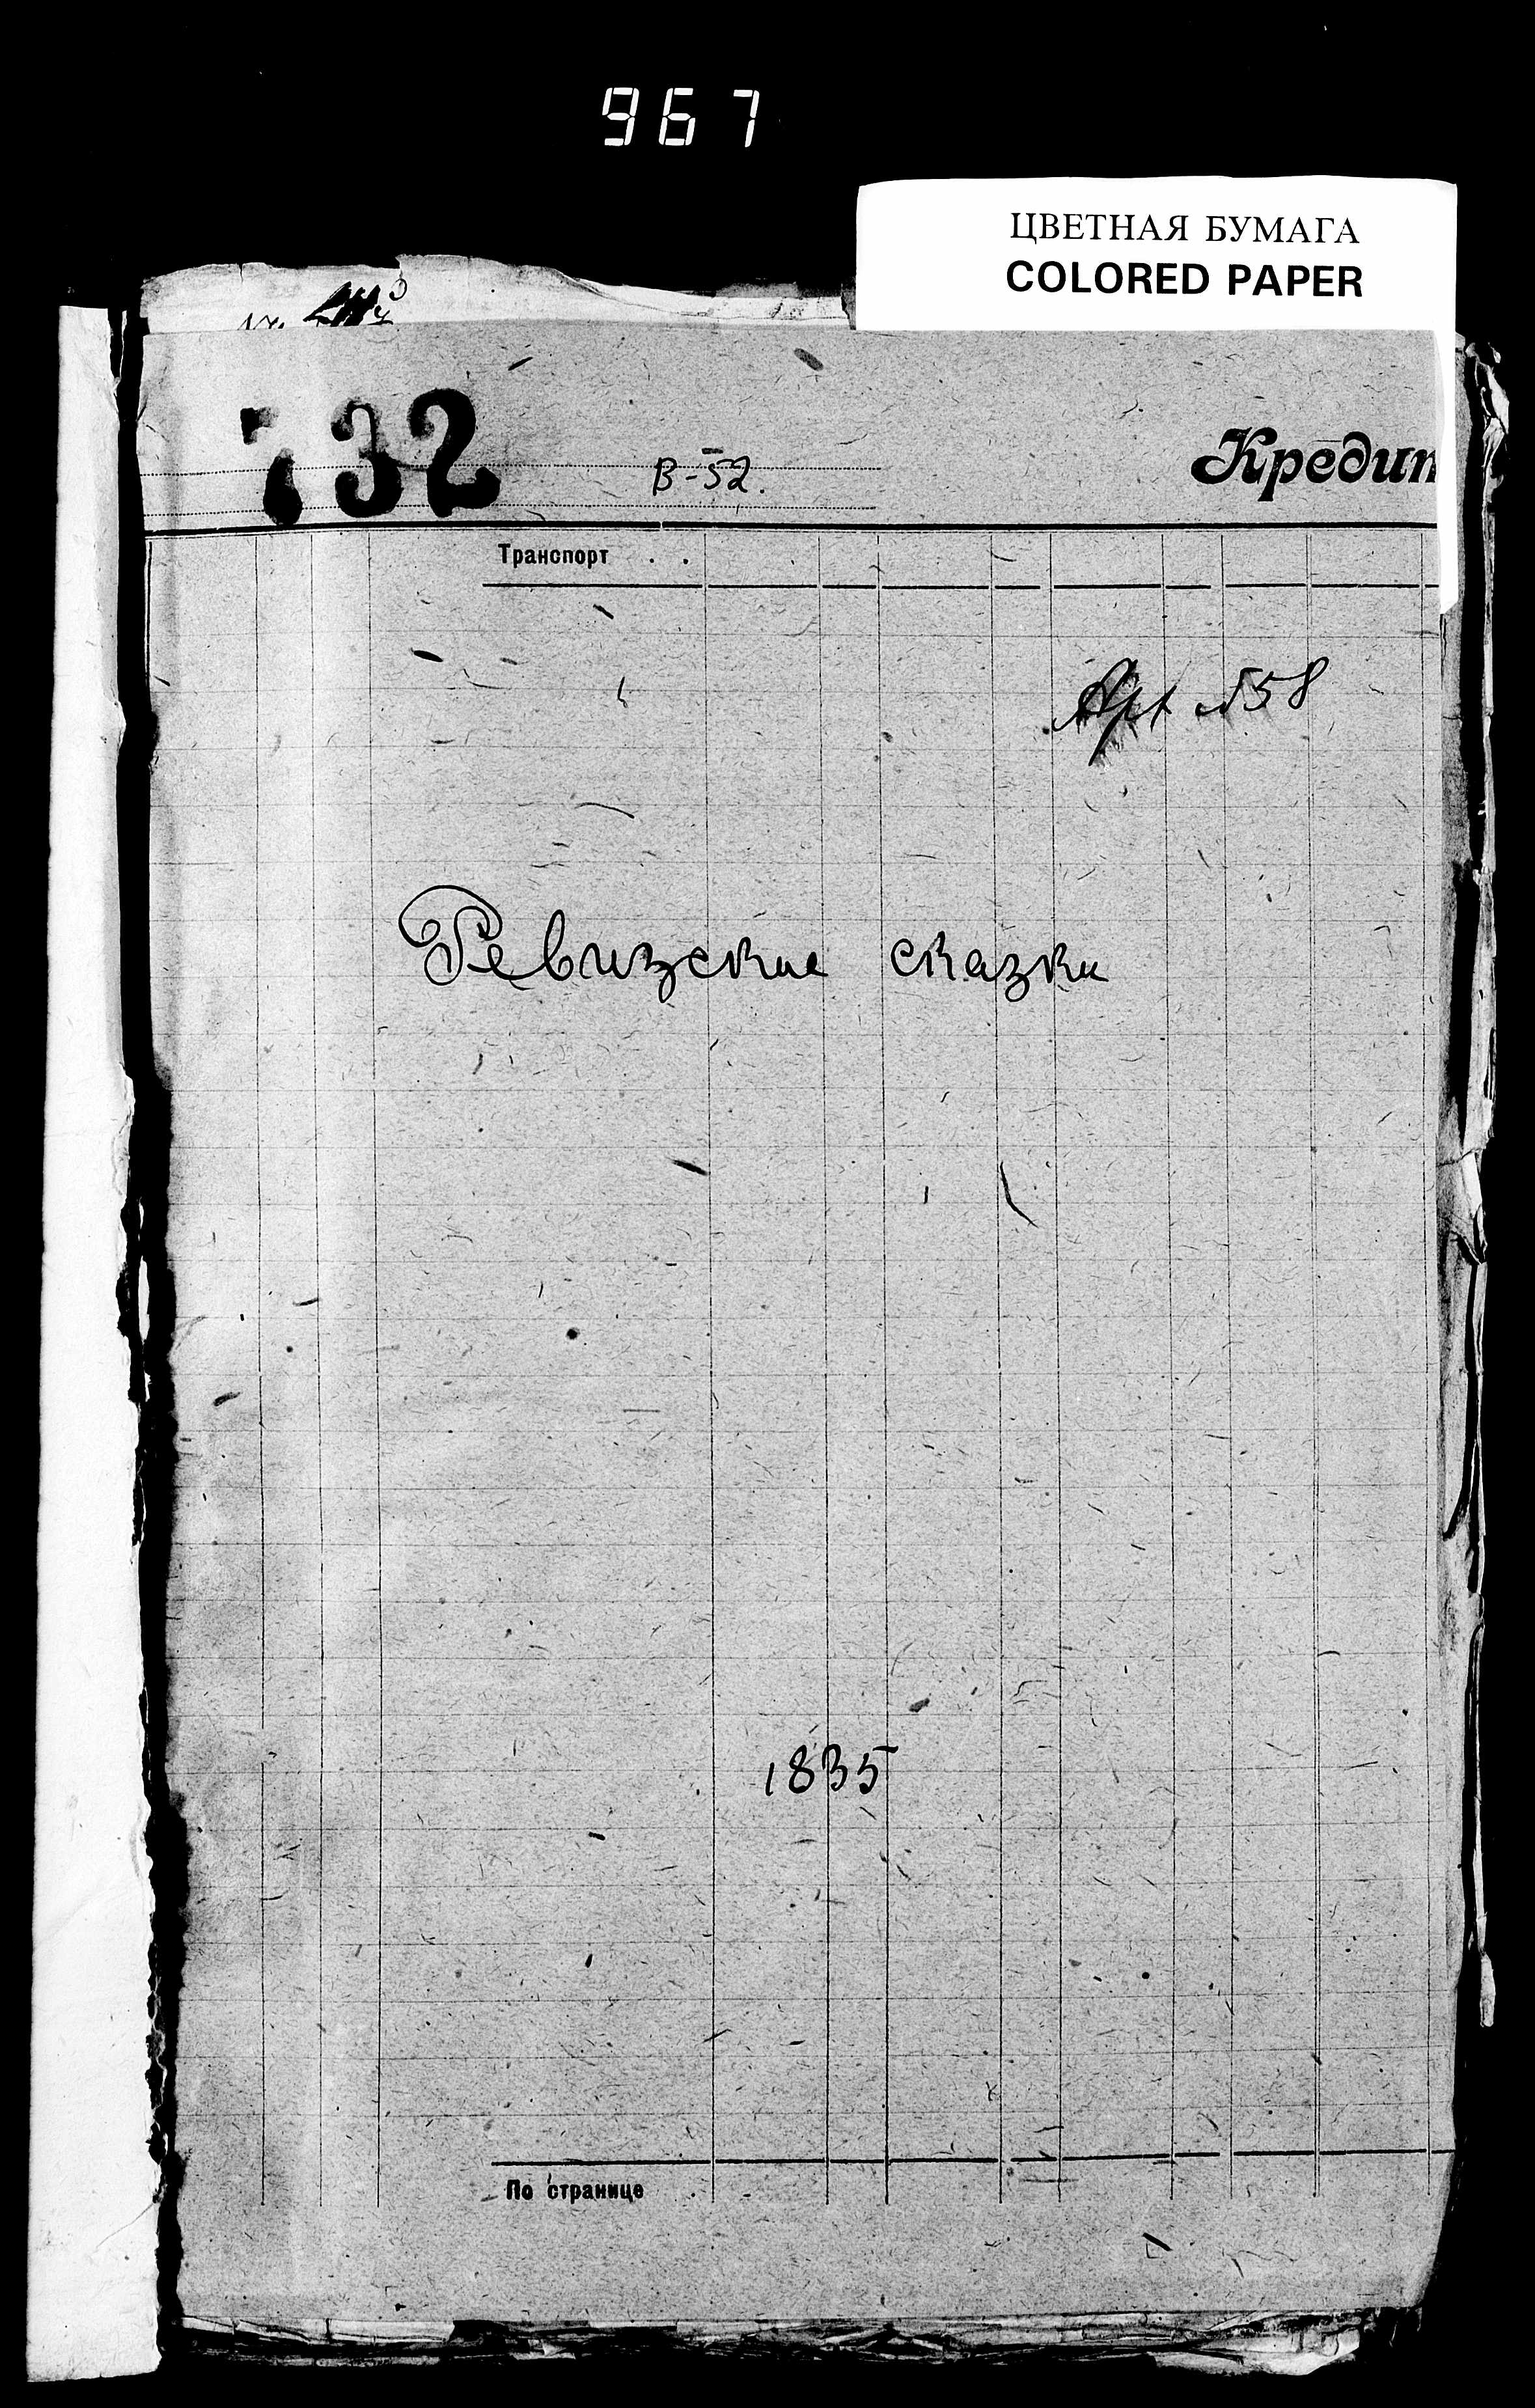 967
ЦВЕТНАЯ БУМАГА
COLORED PAPER
732
В-52.
Кредит
Транспорт . .
Арх №58
Ревизские сказки
1835
По странице .